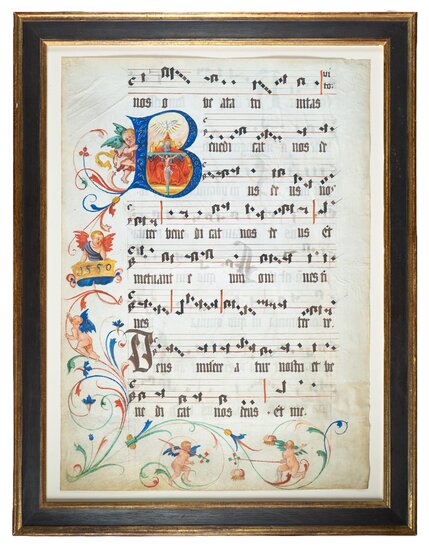 nos o be ata tri nitas
Benedi cat nos de
us de us no
ster bene di cat nos de us Et
1550
metuant e um om nes fi
nes ter re.
Deus misere a tur nostri et be
ne di cat nos deus. Et me.